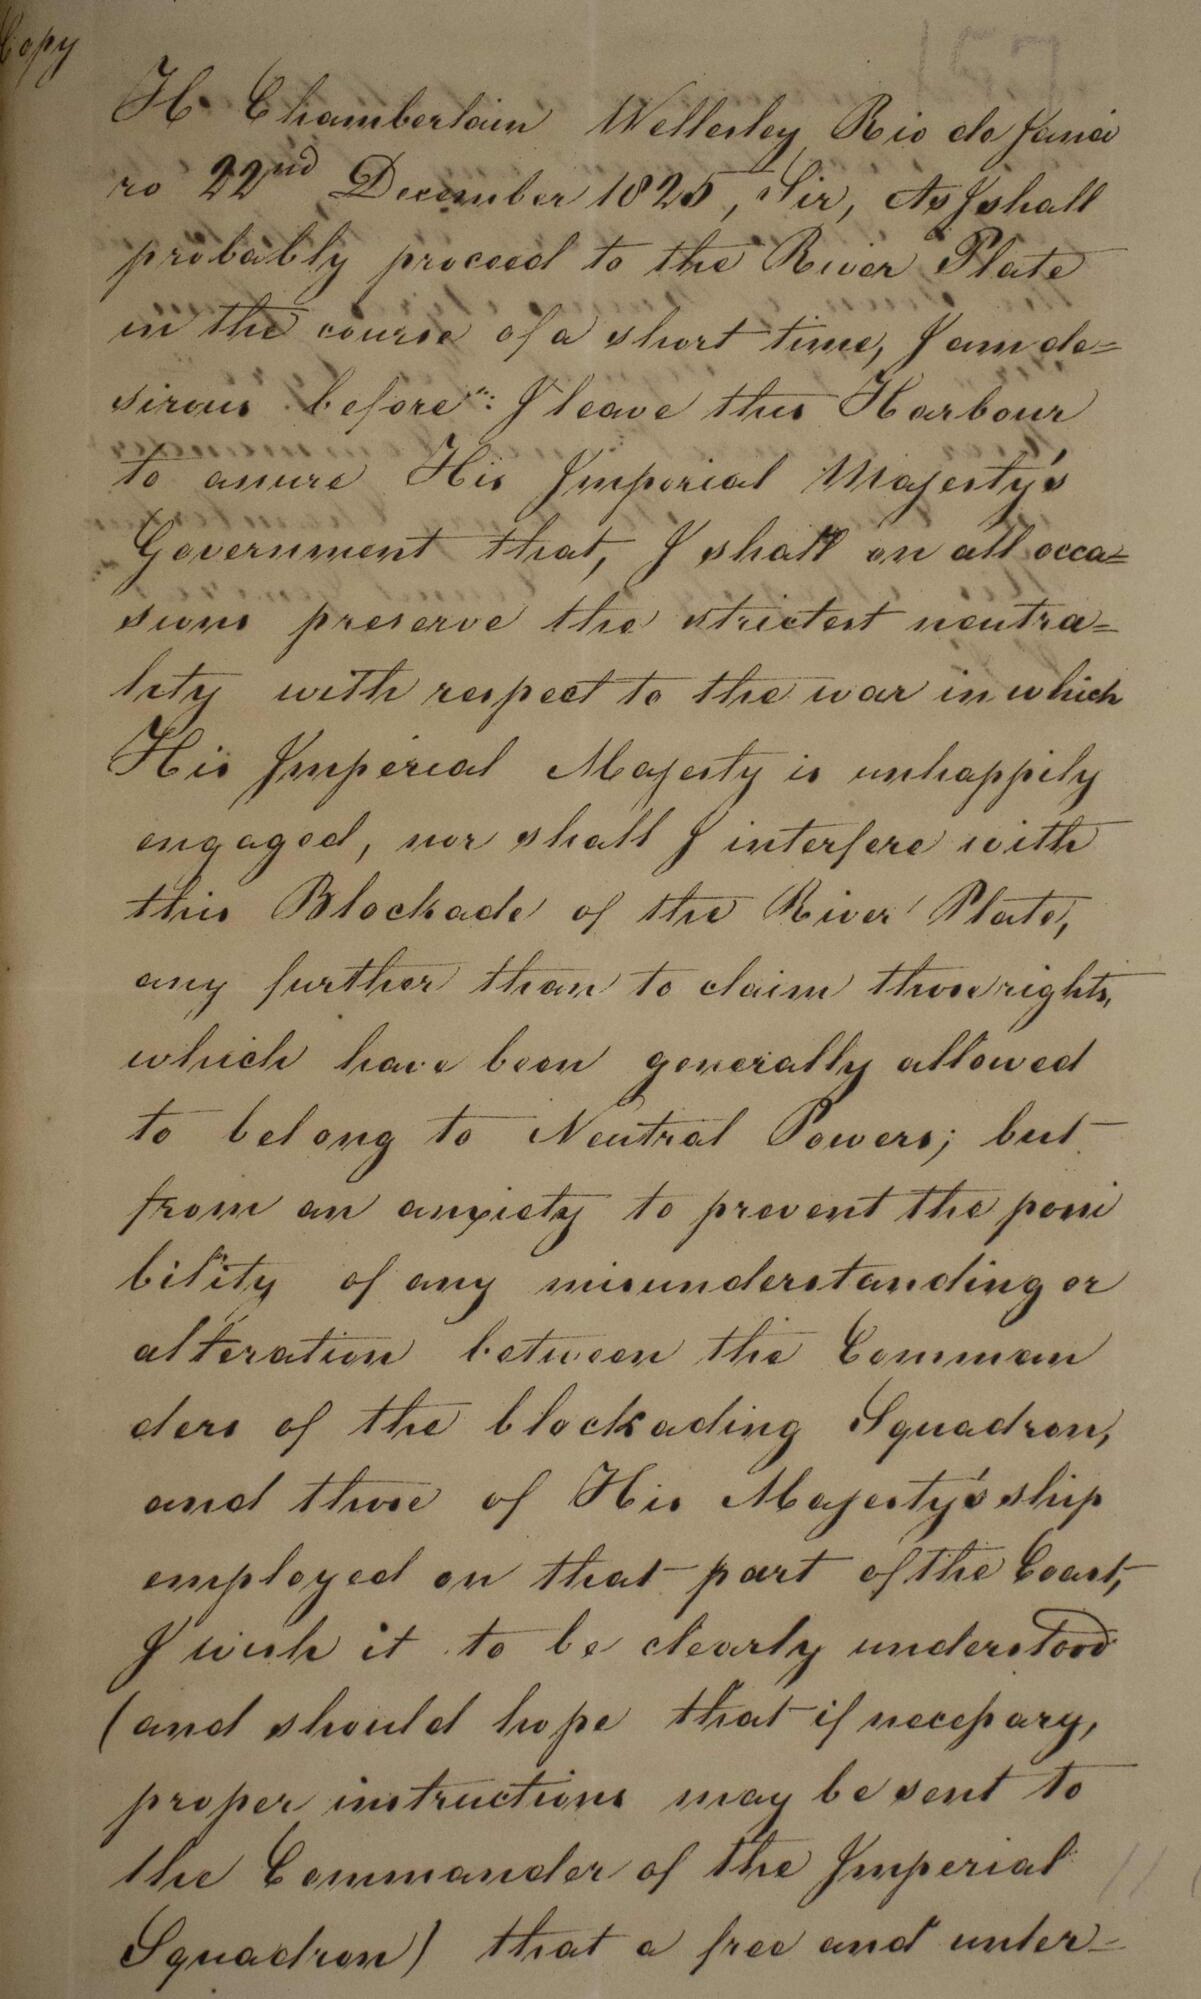 Copy
H. Chamberlain Wellesley Rio de Janei
ro 22nd December 1825, Sir, As I shall
probably proceed to the River Plate
in the course of a short time, I am de=
sirous before I leave this Harbour
to assure His Imperial Majesty's
Government that, I shall on all occa=
sions preserve the strictest neutra=
lity with respect to the war in which
His Imperial Majesty is unhappily
engaged, nor shall I interfere with
this Blockade of the River Plate,
any further than to claim those rights,
which have been generally allowed
to belong to Neutral Powers; but
from an anxiety to prevent the possi
bility of any misunderstanding or
alteration between the Comman
ders of the blockading Squadron,
and those of His Majesty's ship
employed on that part of the Coast,
I wish it to be clearly understood
(and should hope that if necessary,
proper instructions may be sent to
the Commander of the Imperial
Squadron) that a free and unter=